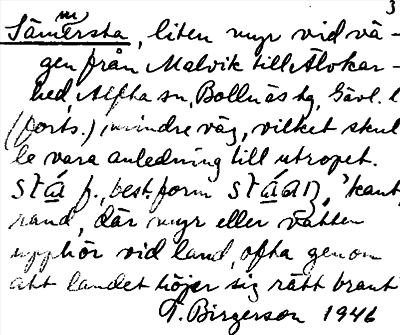 3
Sämmersta, liten myr vid vä-
gen från Malvik till Älvkar-
hed, Alfta sn, Bollnäs tg, Gävl. l
(forts.), mindre väg, vilket skul
le vara anledning till utropet.
stå f., best. form ståaŋ, 'kant,
rand, där myr eller vatten
upphör vid land, ofta genom
att landet höjer sig rätt brant'
T. Birgerson 1946